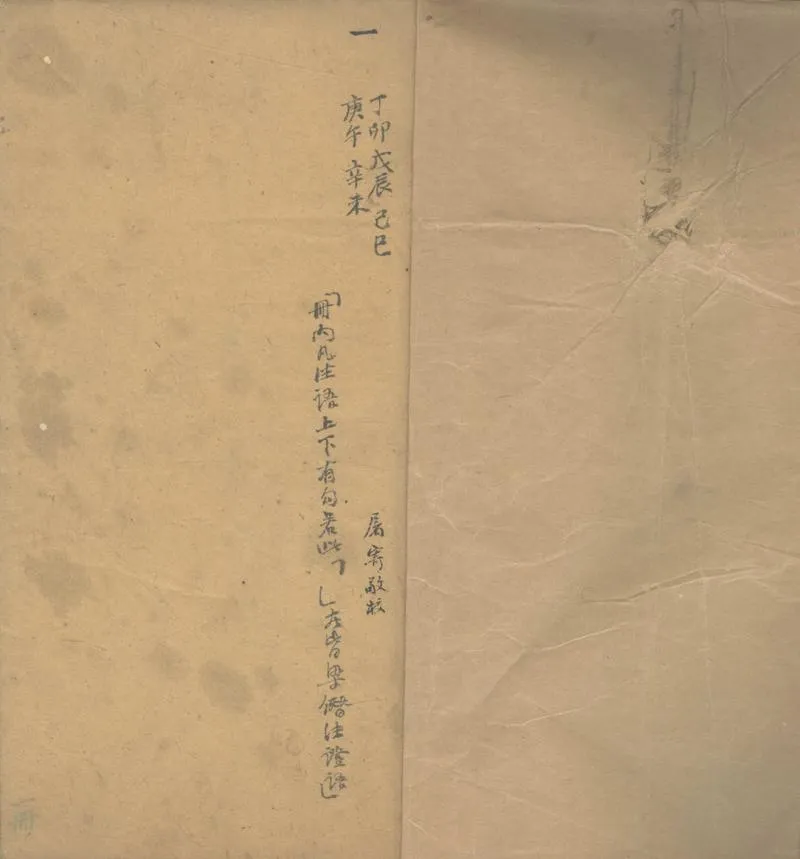 一
丁卯戊辰己巳
庚午 辛未
屠寄敬校
「冊內凡注語上下有勾若此「 」者皆梁僭注證語」
一冊